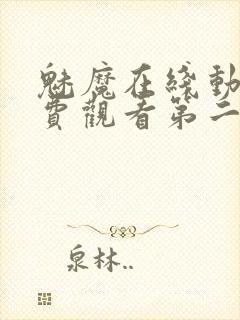 魅魔在綫動
費觀看第二
泉林..